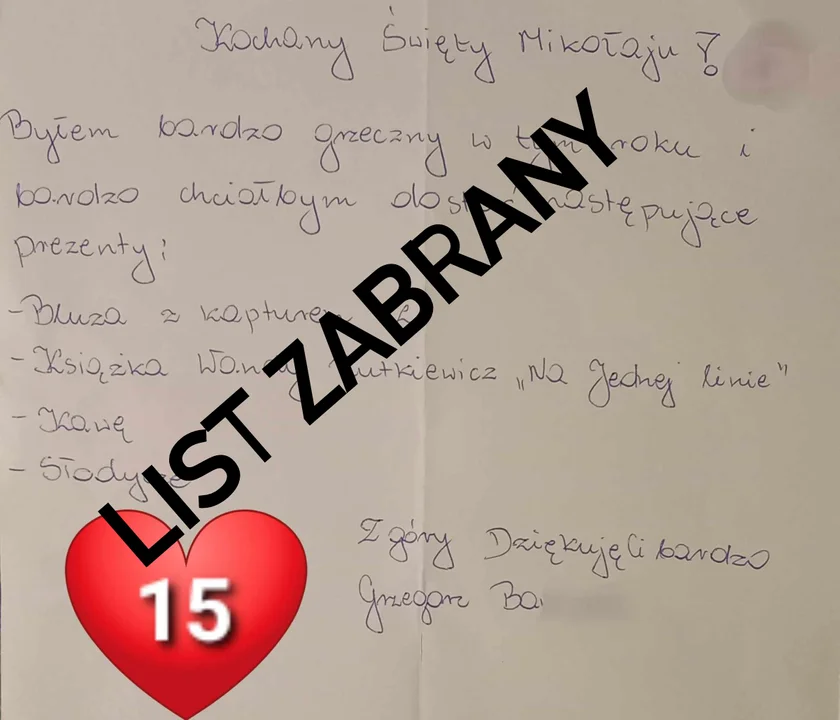 Kochany Święty Mikołaju!
Byłem bardzo grzeczny w tym roku i
bardzo chciałbym dostać następujące
prezenty:
- Bluza z kapturem L
- Książka Wandy Rutkiewicz „Na Jednej linie"
- Kawę
- Słodycze
LIST ZABRANY
Z góry Dziękuję Ci bardzo
Grzegorz Ba
15